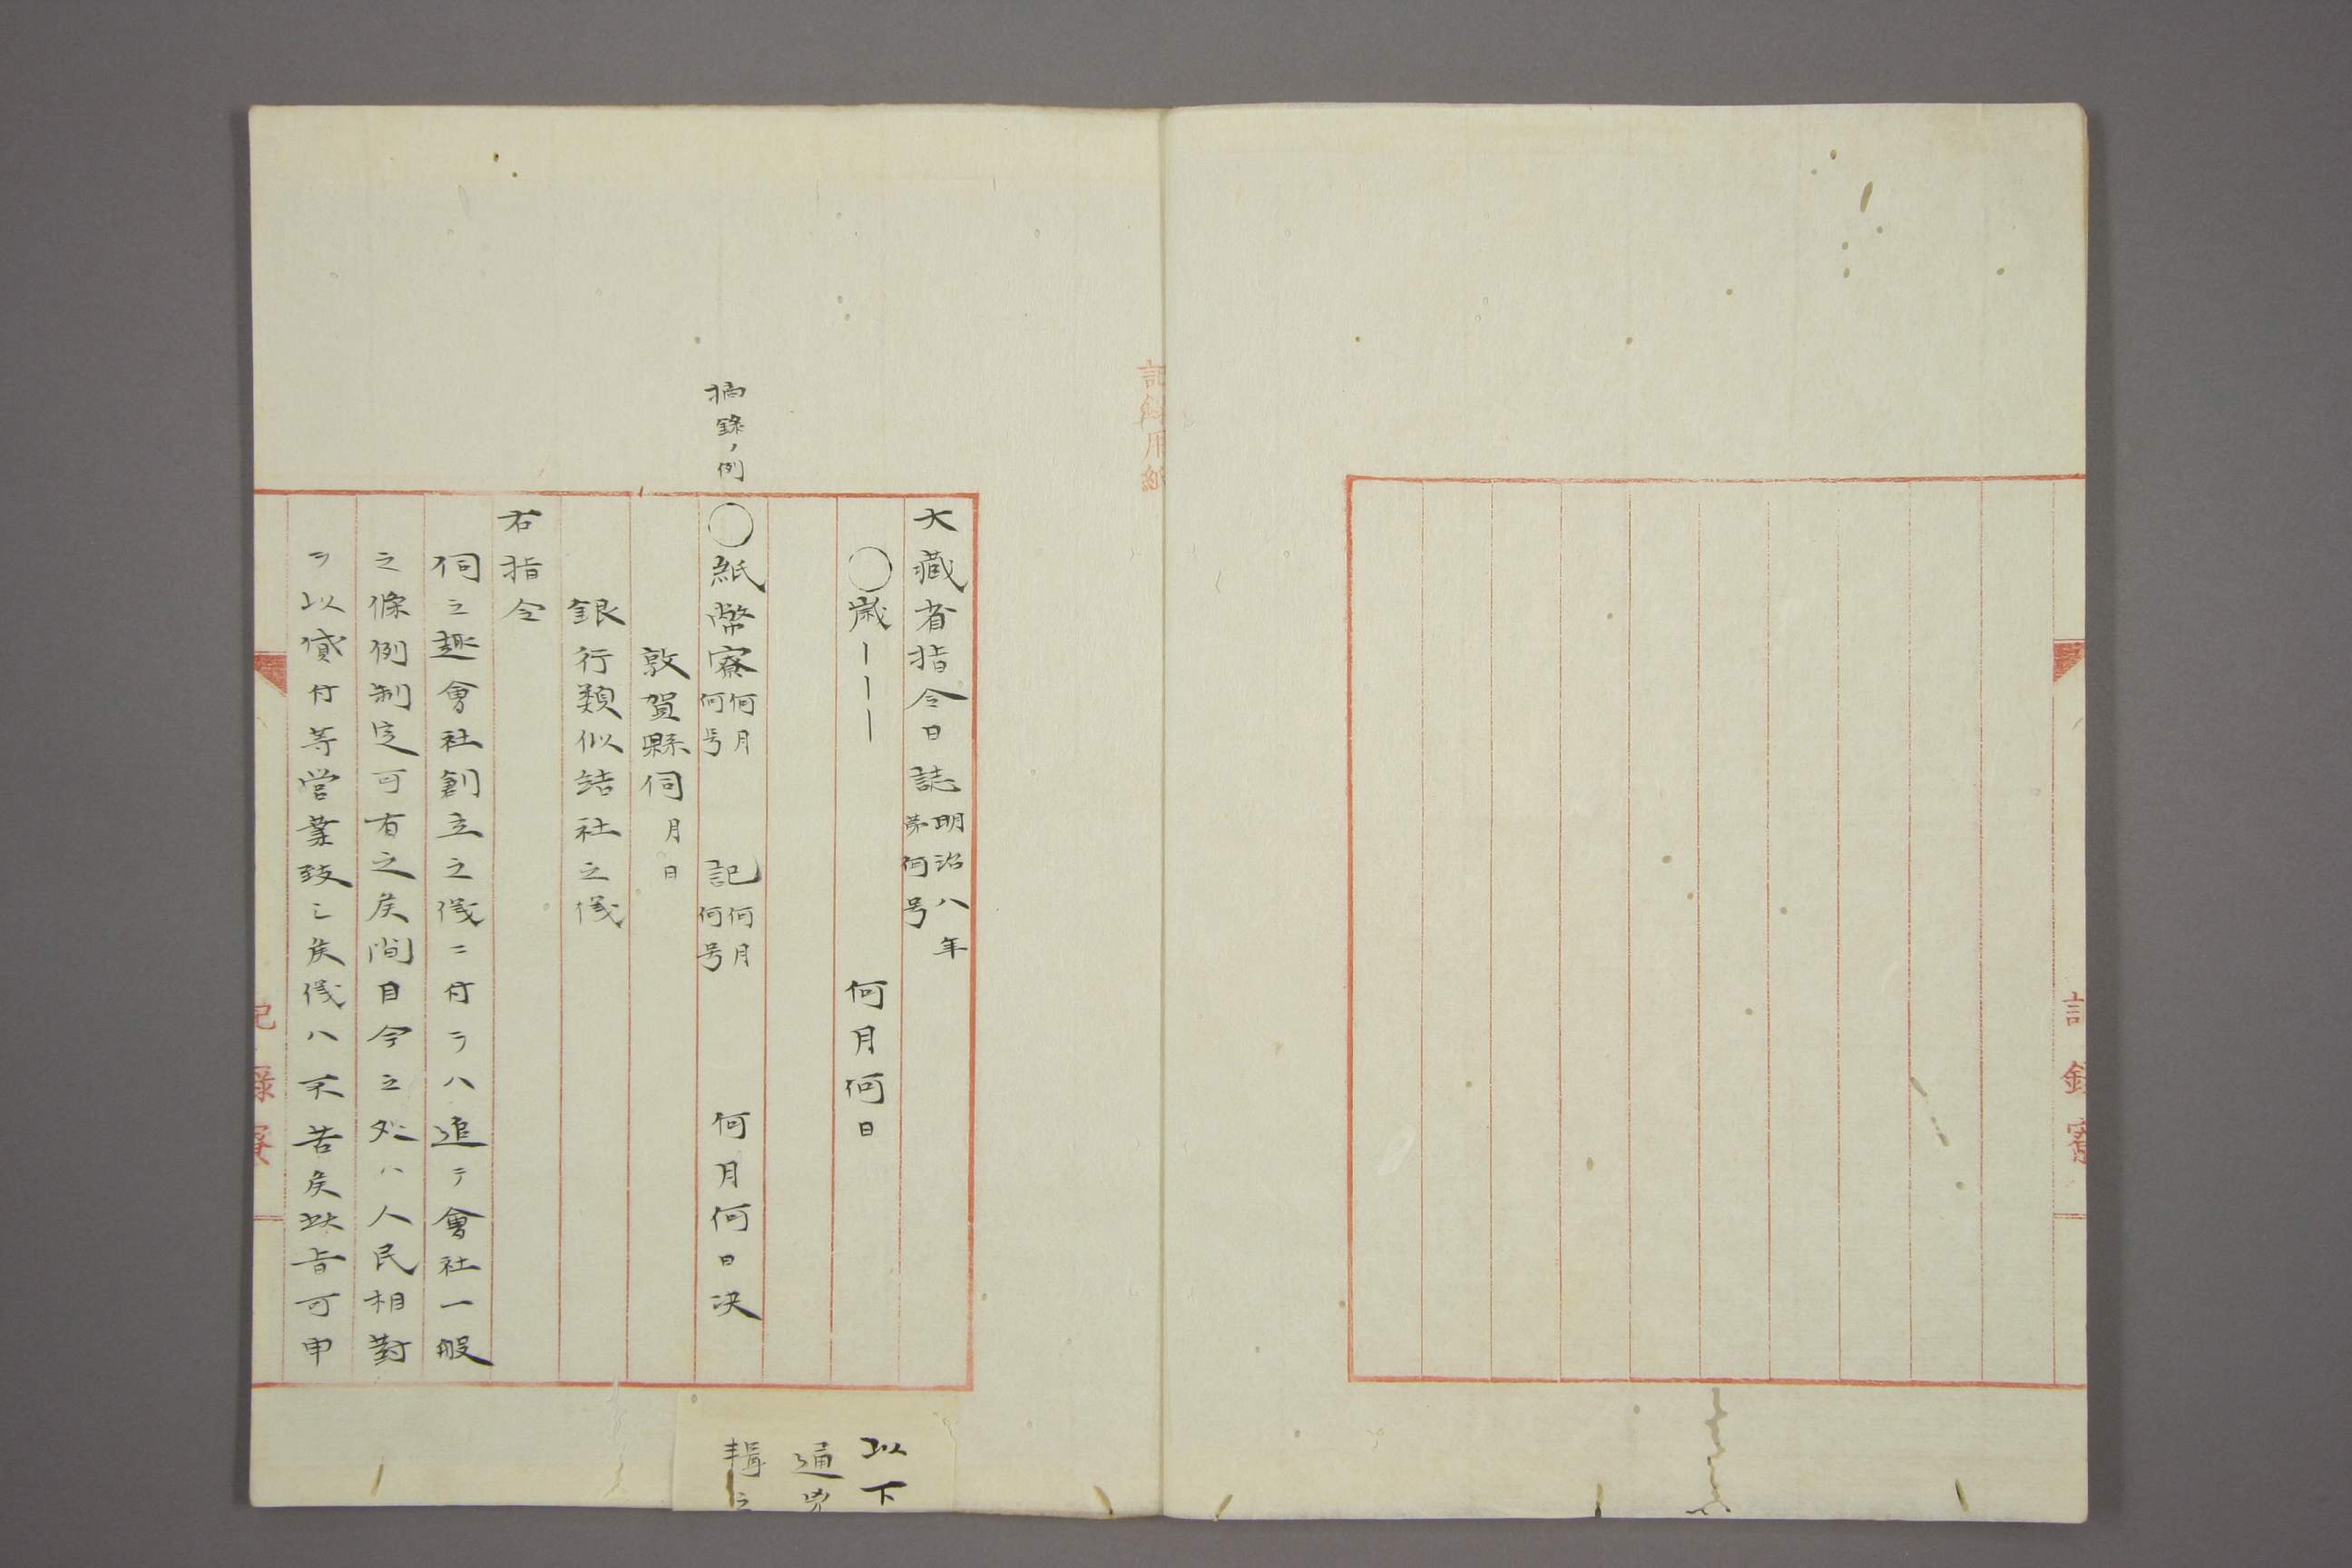 大藏省指令日誌 明治八年 第何号
○歳ーーー 何月何日
摘錄ノ例
○紙幣寮 何月何号 記 何月何号 何月何日決
敦賀縣伺 月日
銀行類似結社之儀
右指令
伺之趣會社創立之儀ニ付テハ追テ會社一般
之條例制定可有之候間自今之処ハ人民相對
ヲ以貸付等営業致シ候儀ハ不苦候此旨可申
以下
通
輯之
記錄寮